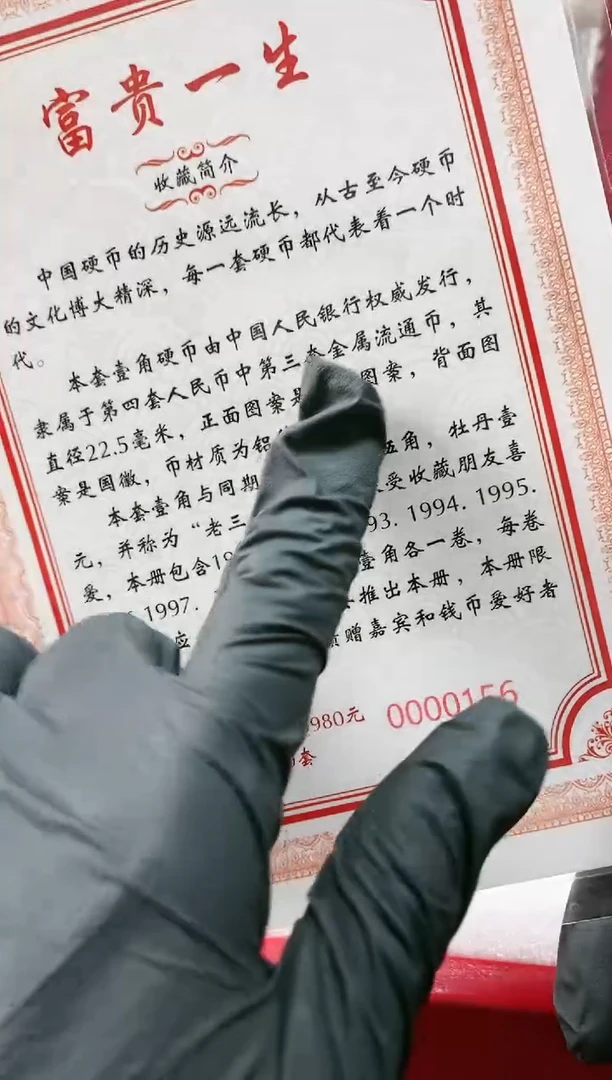 富贵一生
收藏简介
中国硬币的历史源远流长，从古至今硬币
的文化博大精深，每一套硬币都代表着一个时
代。
本套壹角硬币由中国人民银行权威发行，
隶属于第四套人民币中第三套金属流通币，其
直径22.5毫米，正面图案是 图案，背面图
案是国徽，币材质为铝 伍角，牡丹壹
本套壹角与同期 受收藏朋友喜
元，并称为“老三 93. 1994. 1995.
爱，本册包含19 壹角各一卷，每卷
1997. 推出本册，本册限
应 赠嘉宾和钱币爱好者
1980元
0000156
套